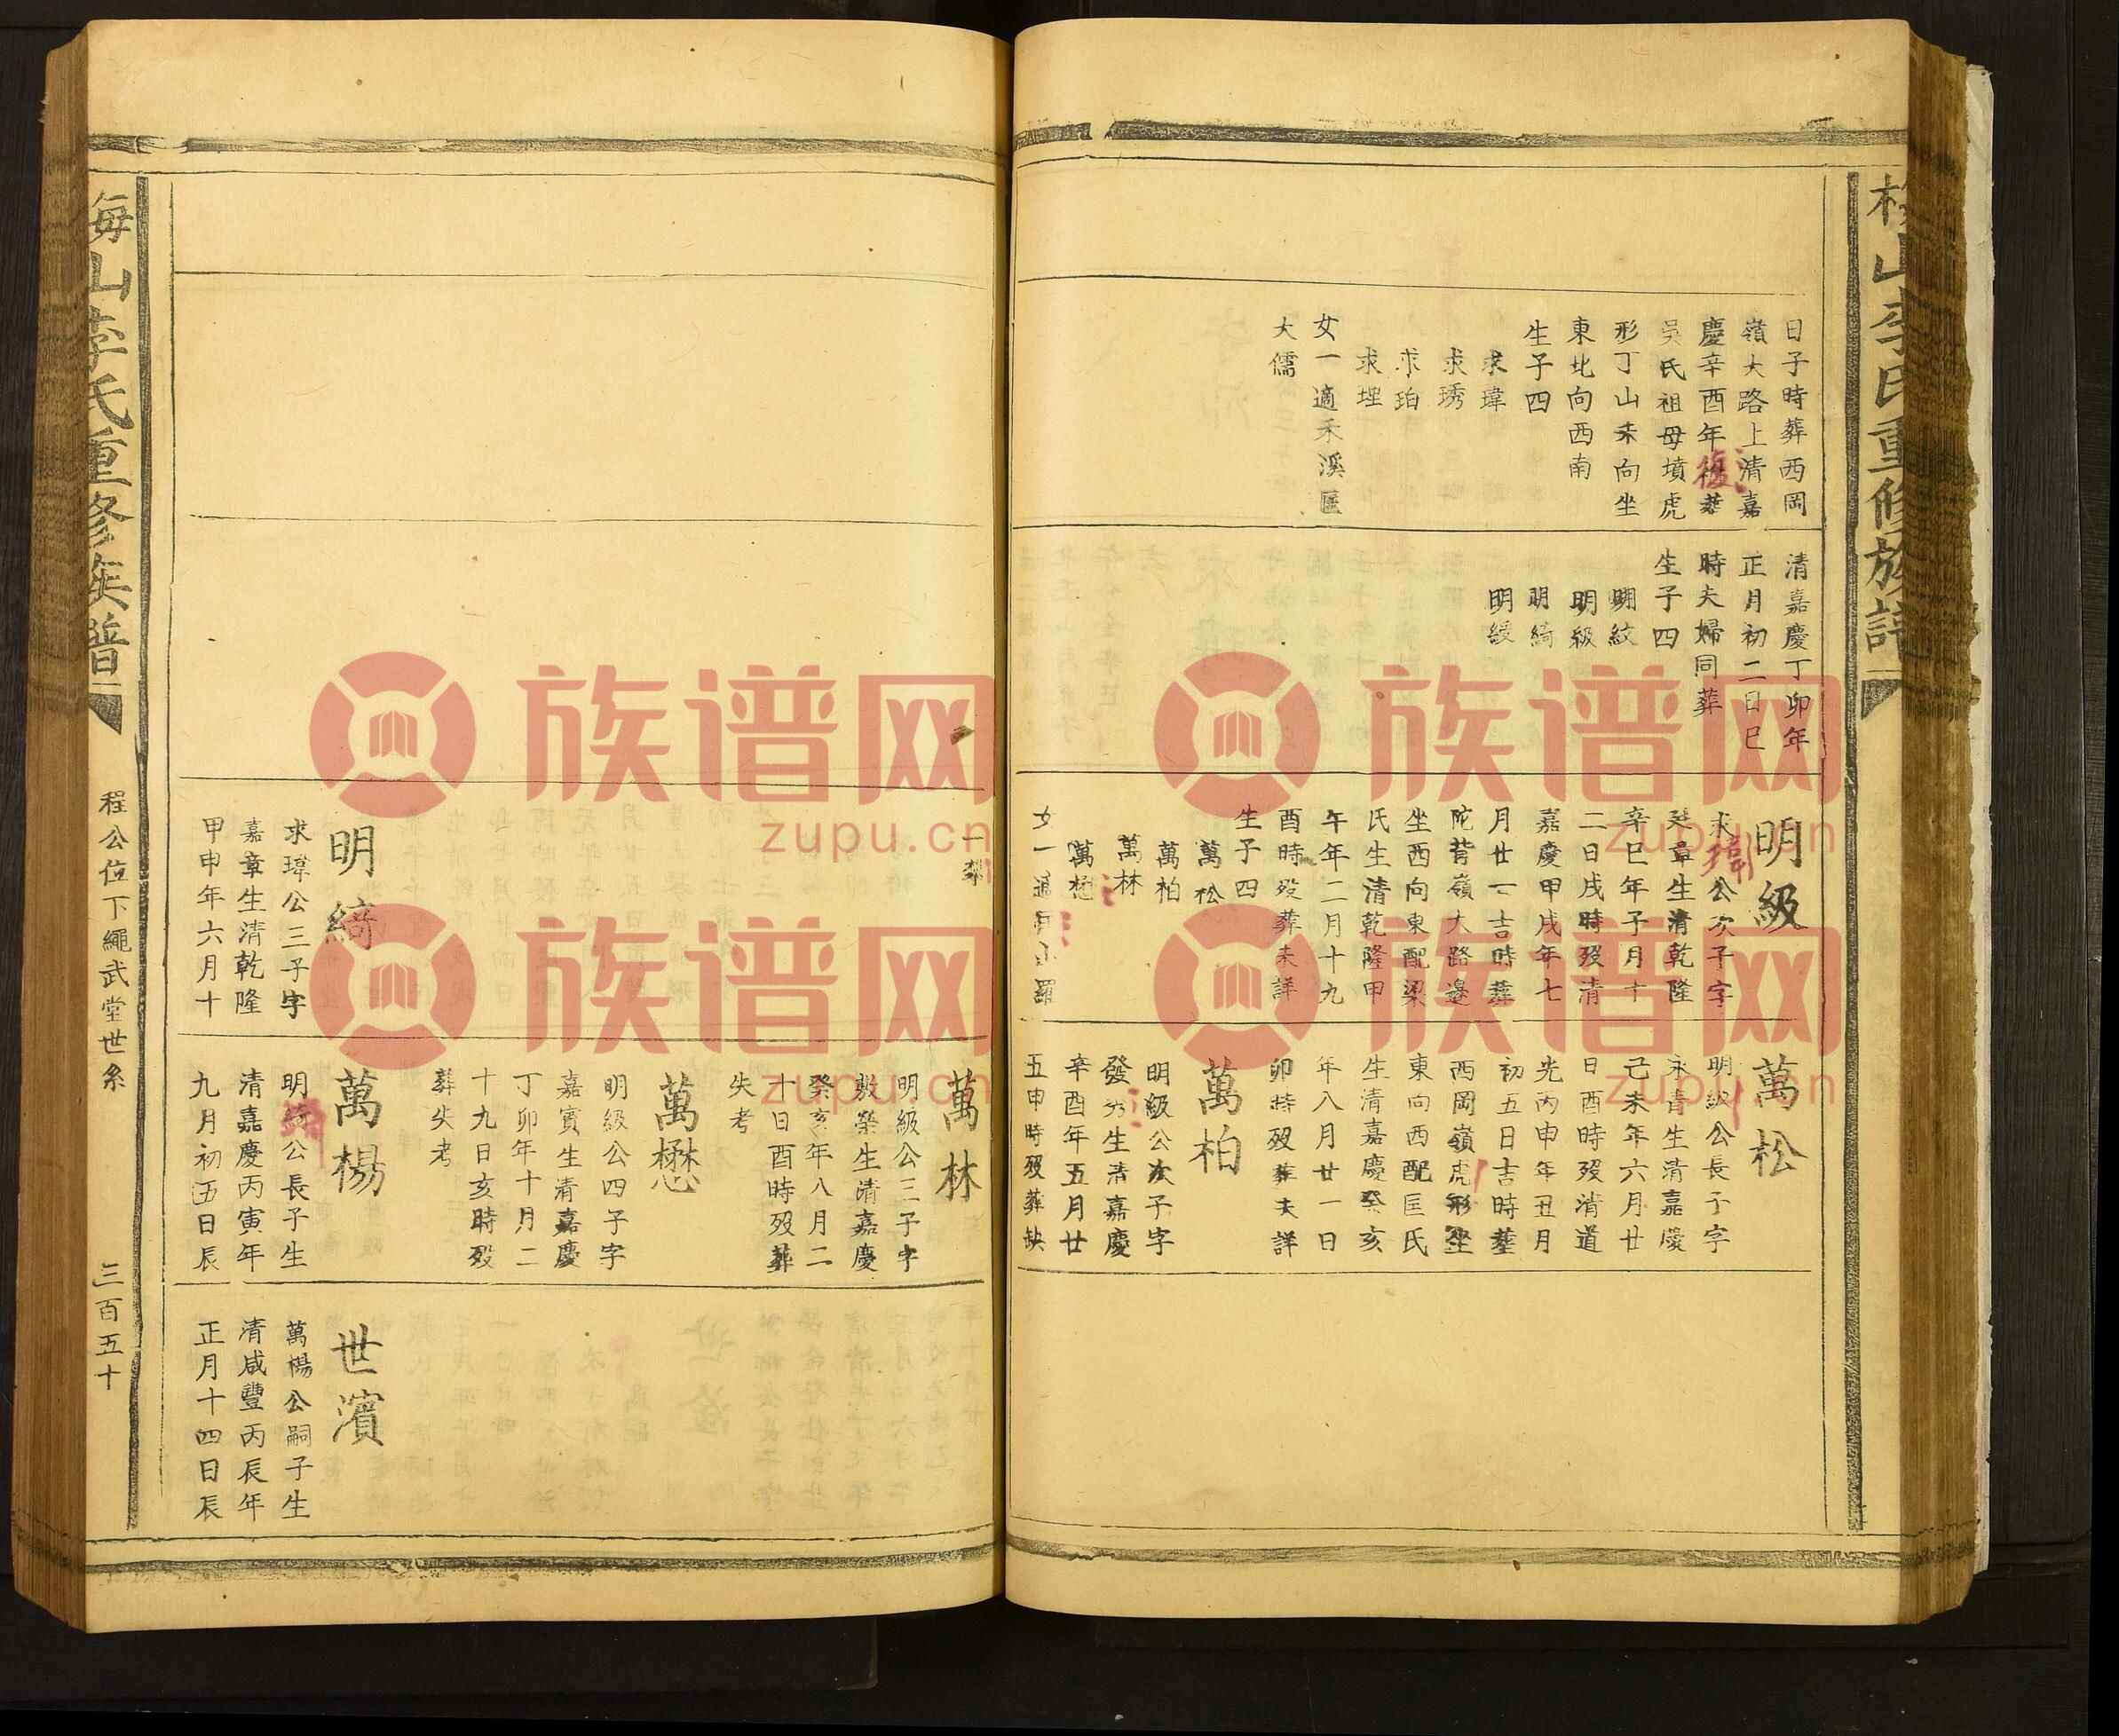 日子時葬西岡
嶺大路上清嘉
慶辛酉年復葬
吳氏祖母墳虎
形丁山未向坐
東北向西南
生子四
求瑋
求琇
求珀
求理
女一適禾溪匡
大儒
清嘉慶丁卯年
正月初二日巳
時夫婦同葬
生子四
明紋
明級
明綺
明綬
明級
求瑋公次子字
章生清乾隆
辛巳年子月十
二日戌時歿清
嘉慶甲戌年七
月廿一吉時葬
陀背嶺大路邊
坐西向東配梁
氏生清乾隆甲
午年二月十九
酉時歿葬未詳
生子四
萬松
萬柏
萬林
萬懋
女一適 羅
萬松
明級公長子字
永青生清嘉慶
己未年六月廿
日酉時歿清道
光丙申年丑月
初五日吉時葬
西岡嶺虎形坐
東向西配匡氏
生清嘉慶癸亥
年八月廿一日
卯時歿葬失詳
萬柏
明級公次子字
發 生清嘉慶
辛酉年五月廿
五申時歿葬缺
梅山李氏重修族譜
萬林
明級公三子字
敷榮生清嘉慶
癸亥年八月二
十日酉時歿葬
失考
萬懋
明級公四子字
嘉賓生清嘉慶
丁卯年十月二
十九日亥時歿
葬失考
明綺
求瑋公三子字
嘉章生清乾隆
甲申年六月十
萬楊
明綺公長子生
清嘉慶丙寅年
九月初五日辰
世濱
萬楊公嗣子生
清咸豐丙辰年
正月十四日辰
梅山李氏重修族譜
程公位下繩武堂世系
三百五十
族谱网
zupu.cn
族谱网
zupu.cn
族谱网
zupu.cn
族谱网
zupu.cn